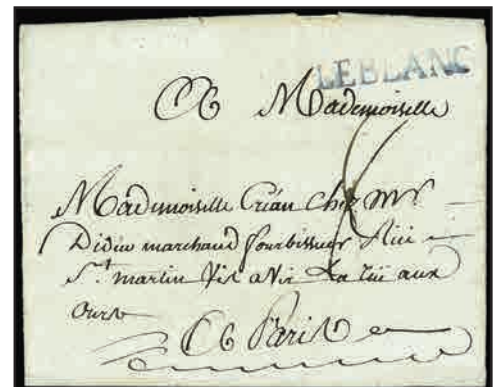 LEBLANC
A Mademoiselle
Mademoiselle Crian Chez Mr
Didier marchand fourbisseur Rue
St. martin Vis a Vis La rue aux
Ours
A Paris